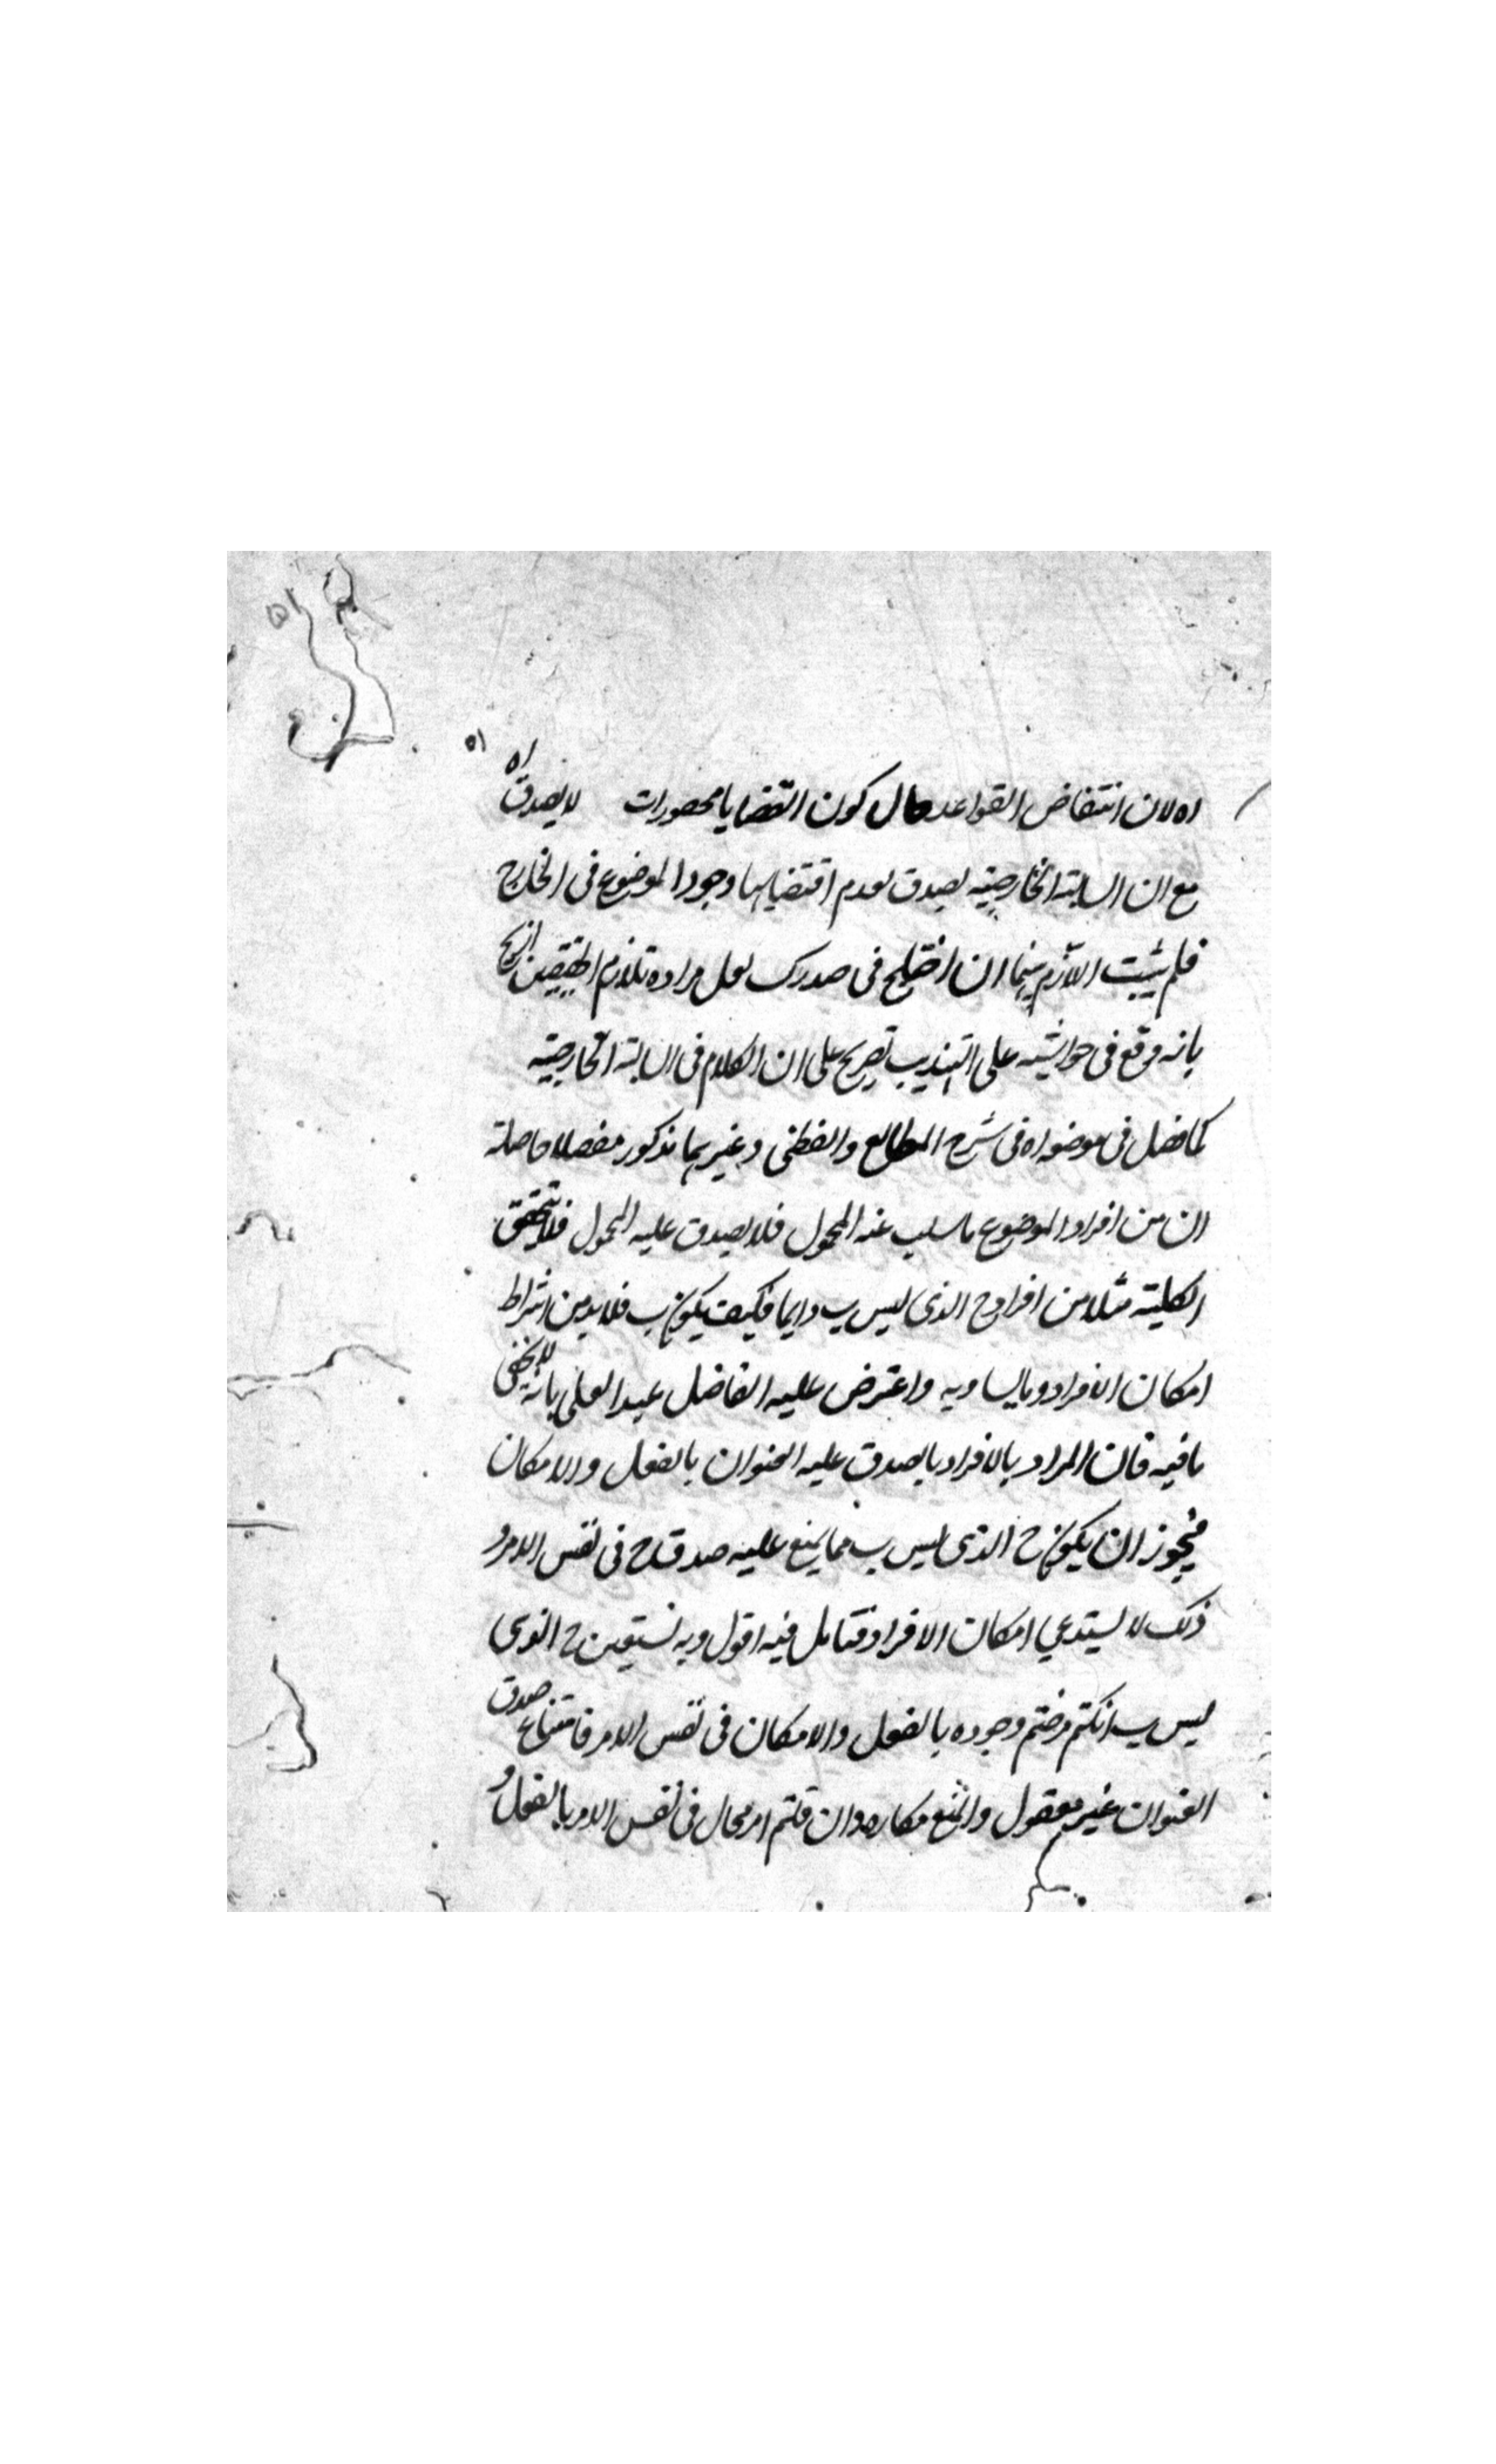 اه لان انتفاض القواعد حال كون القضايا محصورات لا يصدق اه
مع ان السالبة الخارجية يصدق لعدم اقتضايها وجود الموضوع فى الخارج
فلم يثبت اللازم بينما ان اختلج فى صدرك لعل مراده تلازم الحقيقتين
بانه وقع فى حواشيه على التهذيب تصريح على ان الكلام فى السالبة الخارجية
كما فصل فى موضعه اه فى شرح المطالع والقطبى وغيرهما مذكور مفصلا حاصله
ان من افراد الموضوع ما سلب عنه المحمول فلا يصدق عليه المحمول فلا يتحقق
الكلية مثلا من افراد ح الذى ليس ب دايما فكيف يكون ب فلا بد من اشراط
امكان الافراد وبالساويه واعترض عليه الفاضل عبد العلى بانه لا يخفى
ما فيه فان المراد بالافراد ما يصدق عليه العنوان بالفعل والامكان
فيجوز ان يكون ح الذى ليس ب مما يمتنع عليه صدق ح فى نفس الامر و
ذلك لا يستدعي امكان الافراد فتامل فيه اقول وبه نستعين ح الذى
ليس ب انكنتم فرضتم وجوده بالفعل والامكان فى نفس الامر فامتناع صدق
العنوان غير معقول والمنع مكابره وان قلتم امر محال فى نفس الامر بالفعل و